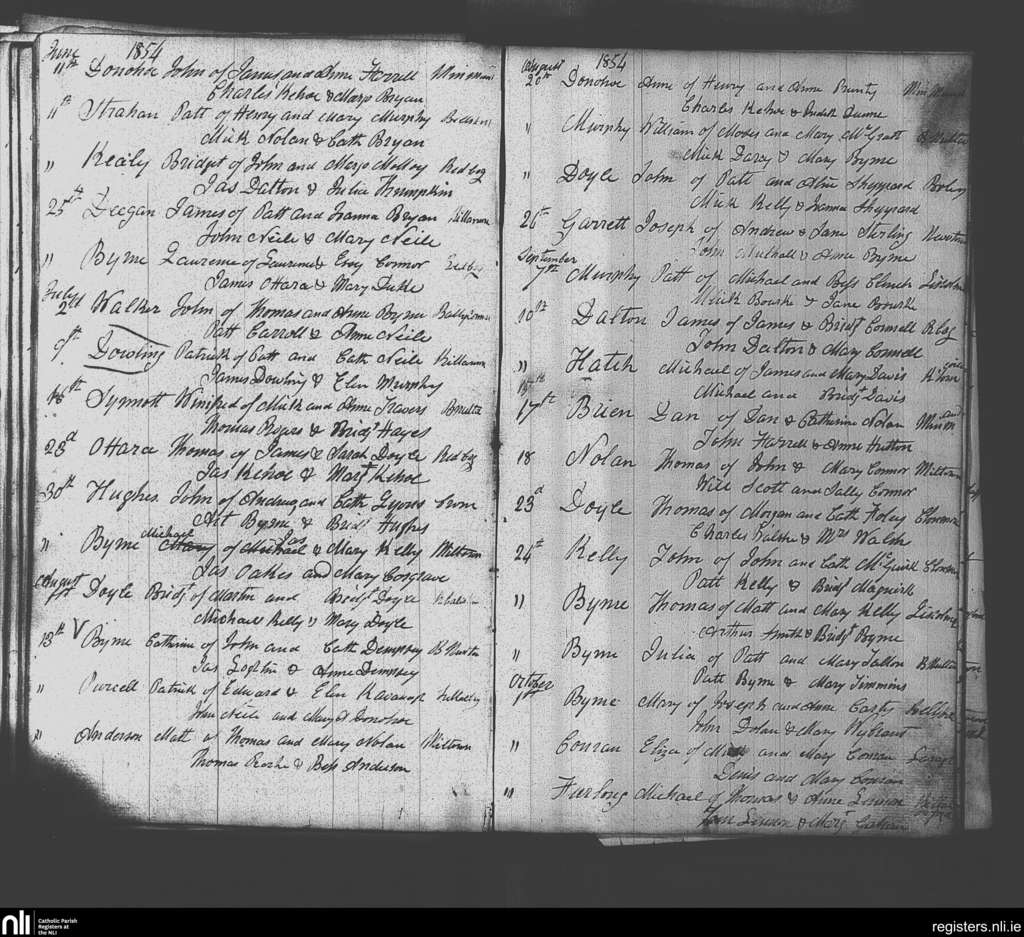 June 1854
11th Donohoe John of James and Anne Farrell
Charles Kehoe & Marg Bryan
11th Strahan Patt of Henry and Mary Murphy
Mick Nolan & Cath Bryan
" Kealy Bridget of John and Marg Redbog
Jas Dalton & Julia Thumpkin
25th Deegan James of Patt and Joanna Bryan
John Neile & Mary Neile
" Byrne Laurence of Laurence & Connor
James Ottara & Mary
July
2d Walker John of Thomas and Anne Byrne
Patt Carroll & Anne Neile
9th Dowling Patrick of Patt and Cath Neile
James Dowling & Elen Murphy
16th Synnott Winifred of Mick and Anne Travers
Thomas Rogers & Bridgt Hayes
23d Ottara Thomas of James & Sarah Doyle Redbog
Jas Kehoe & Margt Kehoe
30th Hughes John of Andrew and Cath Lyons
Art Byrne & Bridgt Hughes
Michael Jas
" Byrne of Michael & Mary Kelly Miltown
Jas Oakes and Mary Cosgrave
August
Doyle Bridgt of Martin and Bridgt Doyle
Michael Kelly " Mary Doyle
13th V Byrne Catherine of John and Cath Dempsey
Jas & Anne Dempsey
" Purcell Patrick of Edward & Elen Kavanagh
John Neile and Mary Donohoe
" Anderson Matt of Thomas and Mary Nolan Miltown
Thomas & Bess Anderson
August 1854
20th Donohoe Anne of Henry and Anne
Charles Kehoe & Judith Dunne
" Murphy William of Moses and Mary McGratt
Mick Darcy & Mary Byrne
" Doyle John of Patt and Sheppard
Mick Kelly & Joanna Sheppard
26th Garrett Joseph of Andrew & Jane Stirling
John Mulhall & Anne Byrne
September
7th Murphy Patt of Michael and Bess
Mick Bourke & Jane Bourke
10th Dalton James of James & Bridgt Connell Rbog
John Dalton & Mary Connell
" Hatch Michael of James and Mary Davis
Michael and Bridgt Davis
17th Brien Dan of Dan & Catherine Nolan
John Farrell & Anne Hutton
18 Nolan Thomas of John & Mary Connor Miltown
Will Scott and Sally Connor
23d Doyle Thomas of Morgan and Cath Foley
Charles Walshe & Mrs Walsh
24th Kelly John of John and Cath McGuirk
Patt Kelly & Bridgt Maguirk
" Byrne Thomas of Matt and Mary Kelly
Arthur Smith & Bridgt Byrne
" Byrne Julia of Patt and Mary Fallon
Patt Byrne & Mary Timmins
October
1st Byrne Mary of Joseph and Anne Casey
John Dolan & Mary
" Conran Eliza of and Mary Conran
Denis and Mary Conran
" Furlong Michael of Thomas & Anne Lennon
Lennon & Margt
nli Catholic Parish
Registers at
the NLI
registers.nli.ie